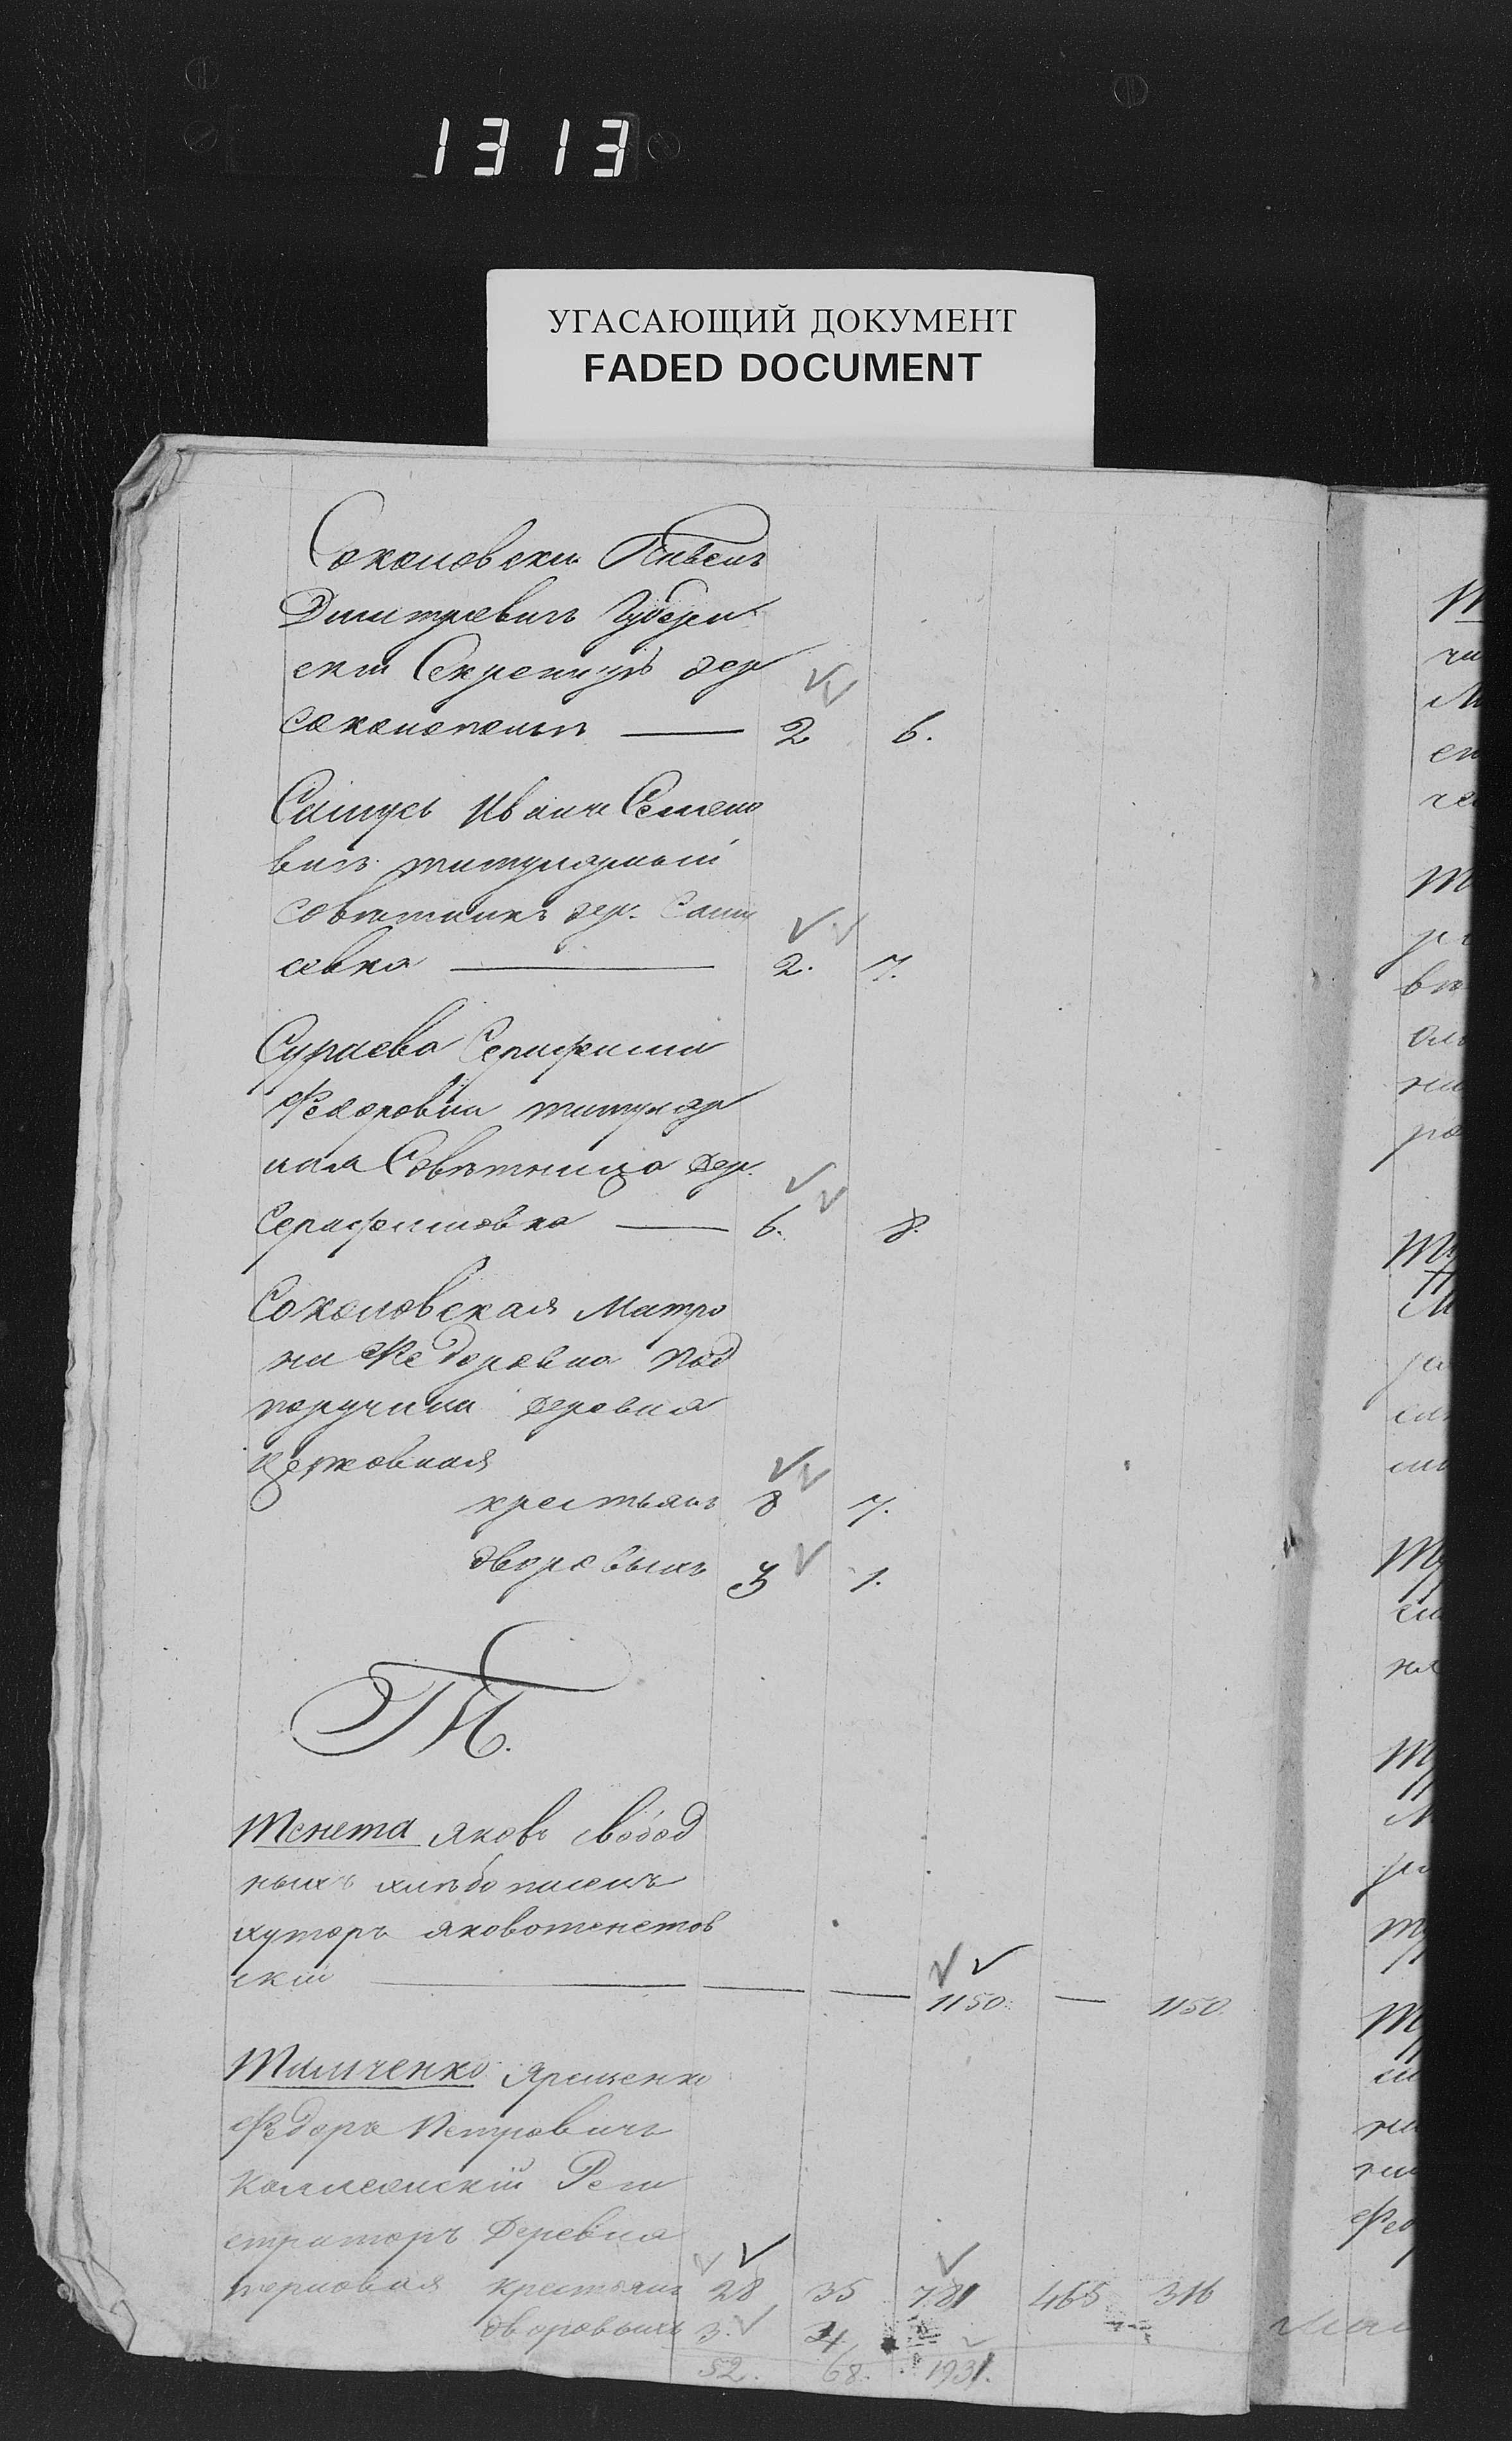 1313
УГАСАЮЩИЙ ДОКУМЕНТ
FADED DOCUMENT
Соколовскій Павелъ
Дмитріевичъ Губерн
скій Секретарь дер
Сокологорскъ — 2 6.
Самусь Иванъ Семено
вичъ титулярный
Советникъ дер. Саму
севка — 2. 7.
Сураева Серафима
Федоровна титуляр
ная Совѣтница дер.
Серафимовка — 6. 8.
Соколовская Матро
на Федоровна Под
поручица деревня
Церковная
крестьянъ 8 7.
дворовыхъ 3 1.
Т.
Тенета Яковъ свобод
ныхъ хлѣбопашецъ
хуторъ Яковотенетов
скій — — — 1150. — 1150.
Тимченко Яременко
Федоръ Петровичъ
Коллежскій Реги
страторъ деревня
крестьянъ 28 35 781 465 316
дворовыхъ 3. 4
52. 68. 1931.